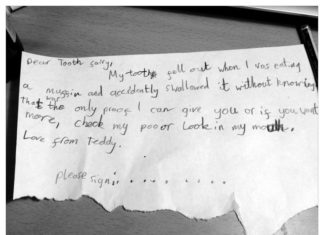 Dear Tooth fairy,
My tooth fell out when I was eating
a muffin and accidently swallowed it without knowing
that was the only proof I can give you or is you want
more, check my poo or look in my mouth.
Love from Teddy.
please sign: . . . . . . . . .